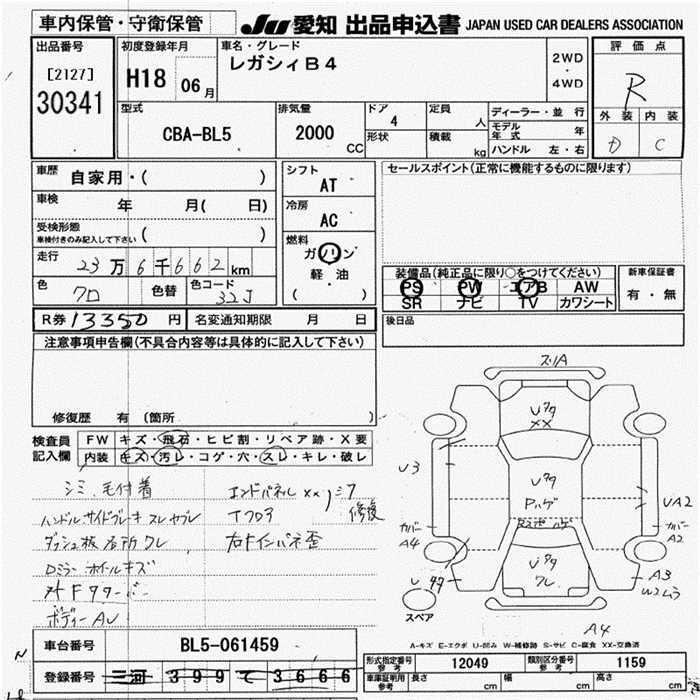 車内保管・守衛保管
JU 愛知 出品申込書 JAPAN USED CAR DEALERS ASSOCIATION
出品番号
[2127]
30341
初度登録年月
H18 06月
車名・グレード
レガシィB4
2WD
・
4WD
評価点
R
外装 内装
D C
型式
CBA-BL5
排気量
2000
CC
ドア
4
形状
定員
人
積載
kg
ディーラー・並行
モデル
年式
年
ハンドル 左・右
車歴
自家用・( )
車検
年 月( 日)
受検形態
車検付きのみ記入して下さい ( )
走行
23万6千662km
色
クロ
色替
色コード
32J
シフト
AT
冷房
AC
燃料
ガソリン
軽・油
( )
セールスポイント(正常に機能するものに限ります)
装備品(純正品に限り○をつけてください)
PS PW エアB AW
SR ナビ TV カワシート
新車保証書
有・無
R券 13350円
名変通知期限 月 日
後日品
注意事項申告欄(不具合内容等は具体的に記入して下さい)
修復歴 有(箇所 )
検査員
記入欄
FW キズ・飛石・ヒビ割・リペア跡・X要
内装 キズ・汚レ・コゲ・穴・スレ・キレ・破レ
シミ、毛付着
ハンドル、サイドブレーキ スレ
ダッシュ板
Dミラー ホイールキズ
ボディー
エンドパネル xx
修復
スリA
Uヲタ
XX
Uヲタ
Pハゲ
Uヲタ
クレ
U3
カバー
A4
UA2
カバー
A2
A3
W2ムラ
A4
スペア
A-キズ E-エクボ U-凹み W-補修跡 S-サビ C-腐食 XX-交換済
車台番号
BL5-061459
登録番号
三河 399 て 3666
形式指定番号
参考
12049
類別区分番号
参考
1159
車庫証明用
参考
長さ cm
幅 cm
高さ cm